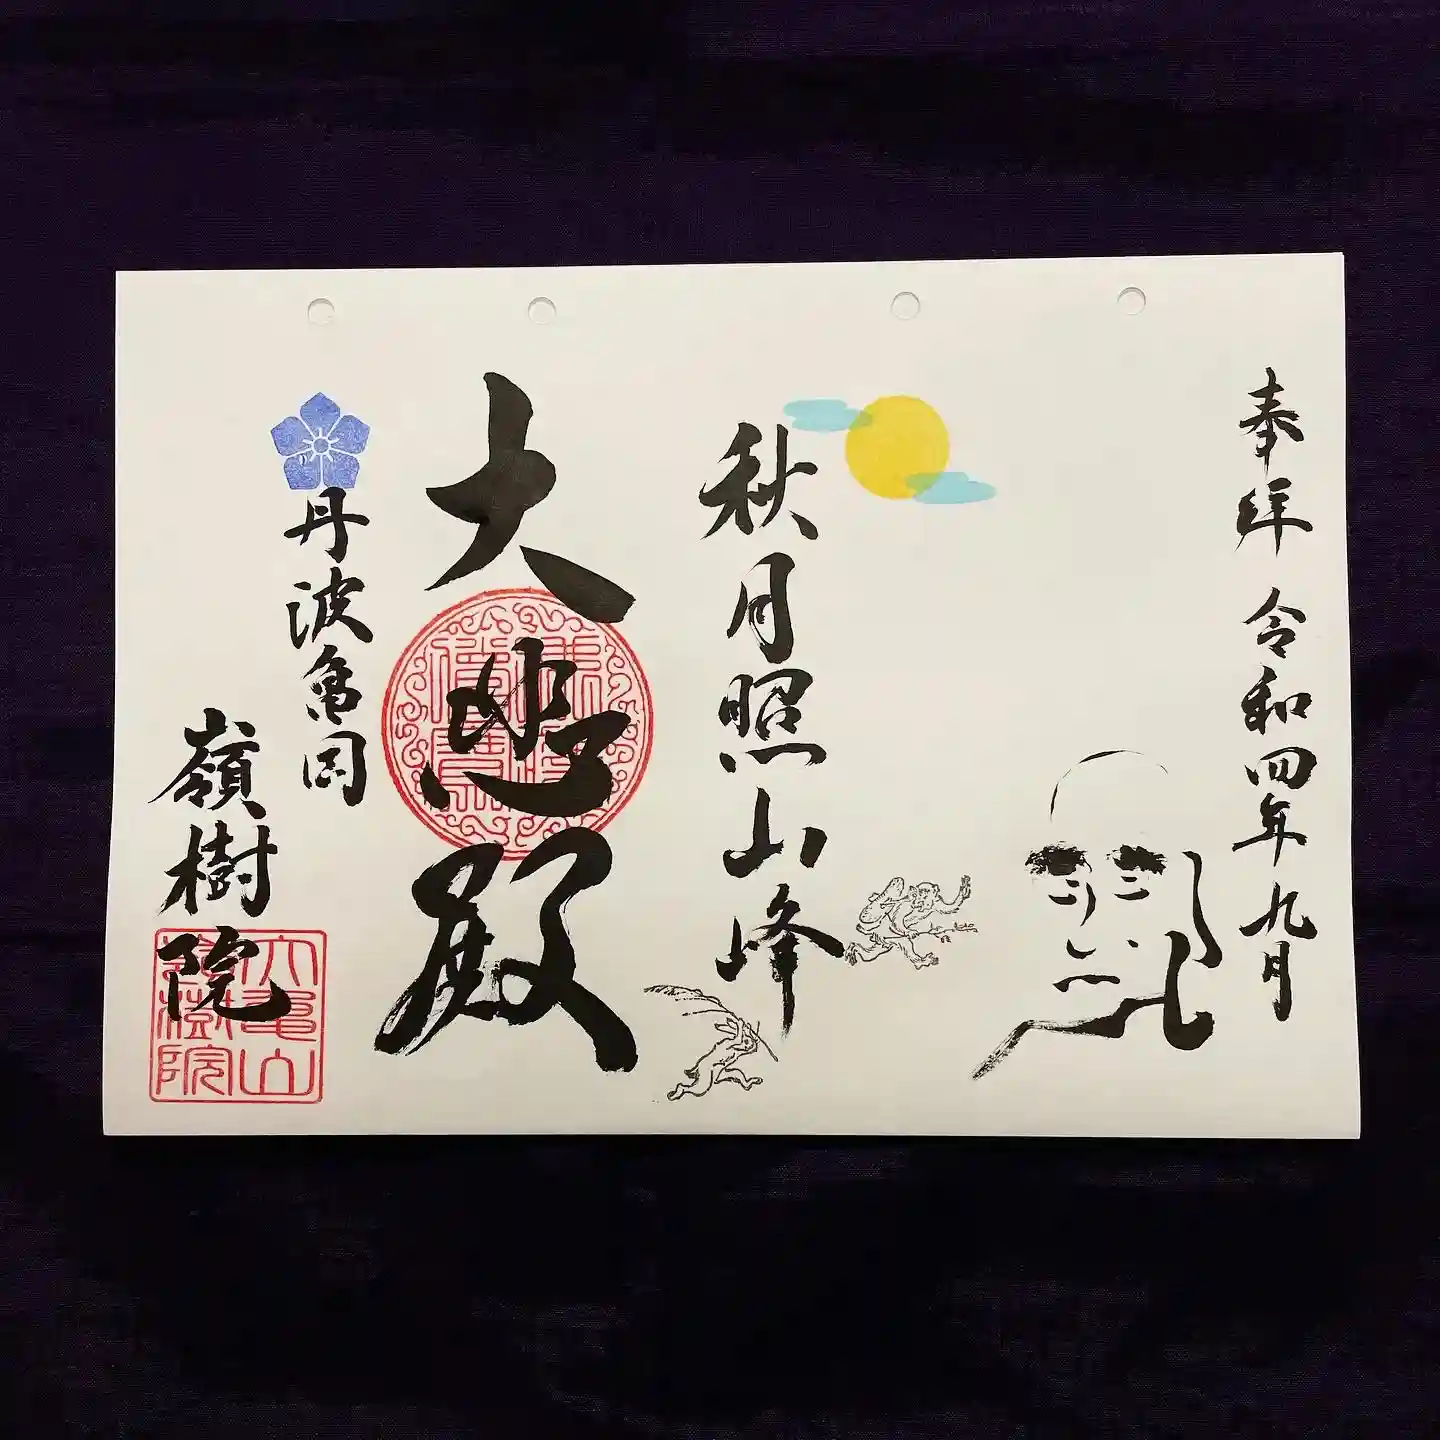 奉拝 令和四年九月
秋月照山峰
大悲殿
丹波亀岡
嶺樹院
大亀山
嶺樹院